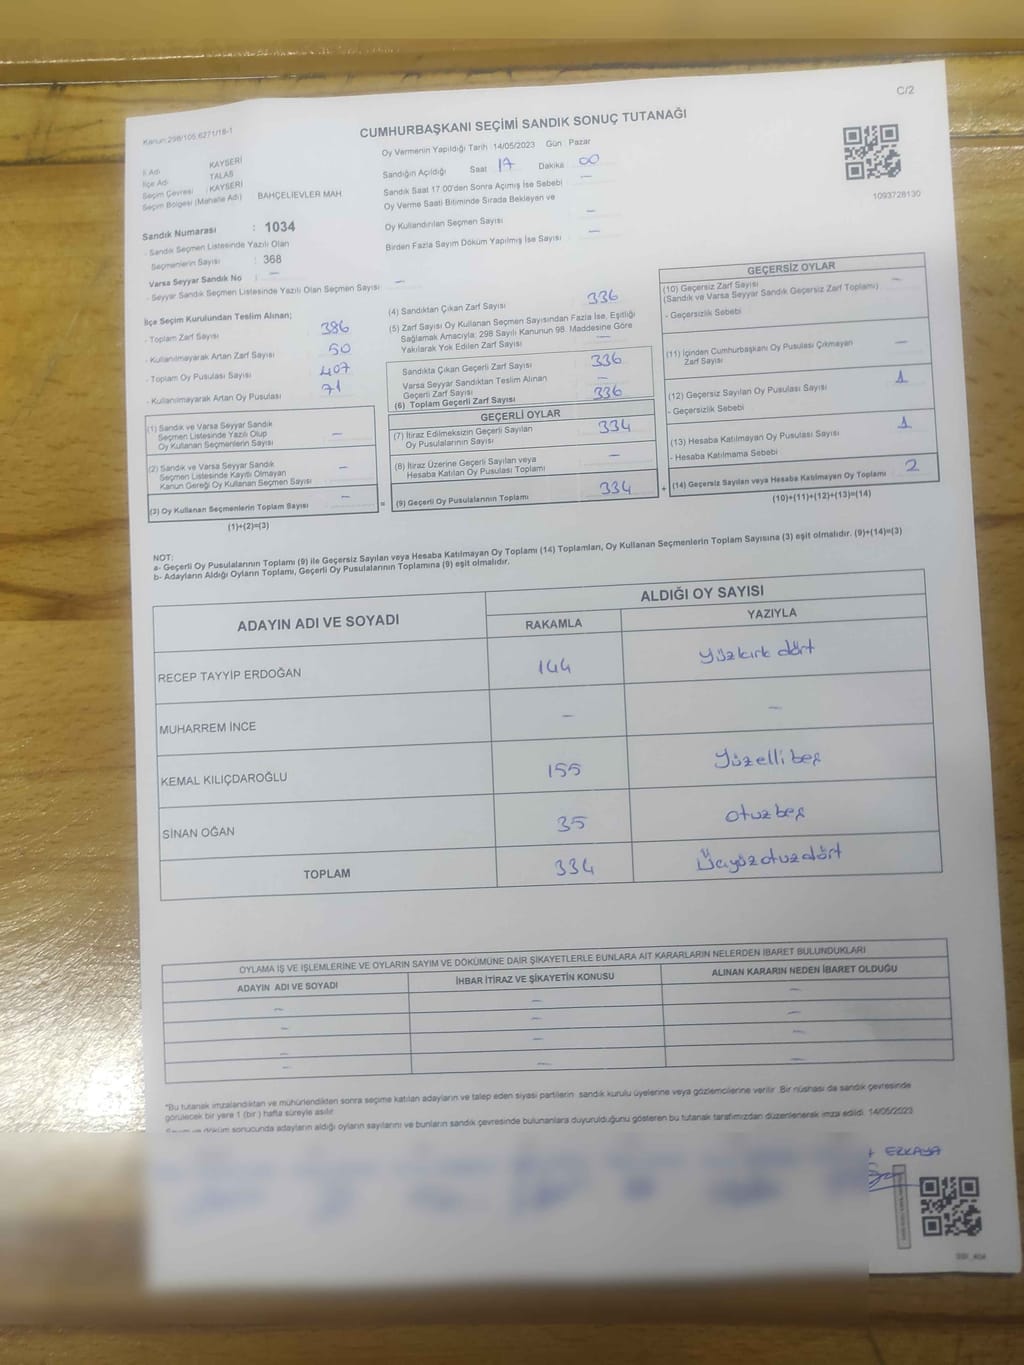 C/2
Kanun:298/105.6271/18-1
CUMHURBAŞKANI SEÇİMİ SANDIK SONUÇ TUTANAĞI
Oy Vermenin Yapıldığı Tarih 14/05/2023 Gün Pazar
İl Adı KAYSERİ
İlçe Adı TALAS
Seçim Çevresi : KAYSERİ
Seçim Bölgesi (Mahalle Adı) BAHÇELİEVLER MAH
Sandığın Açıldığı Saat 17 Dakika 00
Sandık Saat 17.00'den Sonra Açımış İse Sebebi —
Oy Verme Saati Bitiminde Sırada Bekleyen ve
Oy Kullandırılan Seçmen Sayısı —
Birden Fazla Sayım Döküm Yapılmış İse Sayısı —
1093728130
Sandık Numarası : 1034
- Sandık Seçmen Listesinde Yazılı Olan
Seçmenlerin Sayısı : 368
Varsa Seyyar Sandık No : —
- Seyyar Sandık Seçmen Listesinde Yazılı Olan Seçmen Sayısı —
İlçe Seçim Kurulundan Teslim Alınan;
- Toplam Zarf Sayısı 386
- Kullanılmayarak Artan Zarf Sayısı 50
- Toplam Oy Pusulası Sayısı 407
- Kullanılmayarak Artan Oy Pusulası 71
(1) Sandık ve Varsa Seyyar Sandık
Seçmen Listesinde Yazılı Olup
Oy Kullanan Seçmenlerin Sayısı —
(2) Sandık ve Varsa Seyyar Sandık
Seçmen Listesinde Kayıtlı Olmayan
Kanun Gereği Oy Kullanan Seçmen Sayısı —
(3) Oy Kullanan Seçmenlerin Toplam Sayısı —
(1)+(2)=(3)
=
(4) Sandıktan Çıkan Zarf Sayısı 336
(5) Zarf Sayısı Oy Kullanan Seçmen Sayısından Fazla İse, Eşitliği
Sağlamak Amacıyla; 298 Sayılı Kanunun 98. Maddesine Göre
Yakılarak Yok Edilen Zarf Sayısı —
Sandıkta Çıkan Geçerli Zarf Sayısı 336
Varsa Seyyar Sandıktan Teslim Alınan
Geçerli Zarf Sayısı —
(6) Toplam Geçerli Zarf Sayısı 336
GEÇERLİ OYLAR
(7) İtiraz Edilmeksizin Geçerli Sayılan
Oy Pusulalarının Sayısı 334
(8) İtiraz Üzerine Geçerli Sayılan veya
Hesaba Katılan Oy Pusulası Toplamı —
(9) Geçerli Oy Pusulalarının Toplamı 334
+
GEÇERSİZ OYLAR
(10) Geçersiz Zarf Sayısı
(Sandık ve Varsa Seyyar Sandık Geçersiz Zarf Toplamı) —
- Geçersizlik Sebebi
(11) İçinden Cumhurbaşkanı Oy Pusulası Çıkmayan
Zarf Sayısı —
(12) Geçersiz Sayılan Oy Pusulası Sayısı 1
- Geçersizlik Sebebi
(13) Hesaba Katılmayan Oy Pusulası Sayısı 1
- Hesaba Katılmama Sebebi
(14) Geçersiz Sayılan veya Hesaba Katılmayan Oy Toplamı 2
(10)+(11)+(12)+(13)=(14)
NOT:
a- Geçerli Oy Pusulalarının Toplamı (9) ile Geçersiz Sayılan veya Hesaba Katılmayan Oy Toplamı (14) Toplamları, Oy Kullanan Seçmenlerin Toplam Sayısına (3) eşit olmalıdır. (9)+(14)=(3)
b- Adayların Aldığı Oyların Toplamı, Geçerli Oy Pusulalarının Toplamına (9) eşit olmalıdır.
ADAYIN ADI VE SOYADI
ALDIĞI OY SAYISI
RAKAMLA YAZIYLA
RECEP TAYYİP ERDOĞAN 144 yüzkırk dört
MUHARREM İNCE — —
KEMAL KILIÇDAROĞLU 155 Yüzelli beş
SİNAN OĞAN 35 otuzbeş
TOPLAM 334 Üçyüzotuzdört
OYLAMA İŞ VE İŞLEMLERİNE VE OYLARIN SAYIM VE DÖKÜMÜNE DAİR ŞİKAYETLERLE BUNLARA AİT KARARLARIN NELERDEN İBARET BULUNDUKLARI
ADAYIN ADI VE SOYADI İHBAR İTİRAZ VE ŞİKAYETİN KONUSU ALINAN KARARIN NEDEN İBARET OLDUĞU
— — —
— — —
— — —
— — —
*Bu tutanak imzalandıktan ve mühürlendikten sonra seçime katılan adayların ve talep eden siyasi partilerin sandık kurulu üyelerine veya gözlemcilerine verilir. Bir nüshası da sandık çevresinde
görülecek bir yere 1 (bir) hafta süreyle asılır.
Sayım ve döküm sonucunda adayların aldığı oyların sayılarını ve bunların sandık çevresinde bulunanlara duyurulduğunu gösteren bu tutanak tarafımızdan düzenlenerek imza edildi. 14/05/2023
EZKAYA